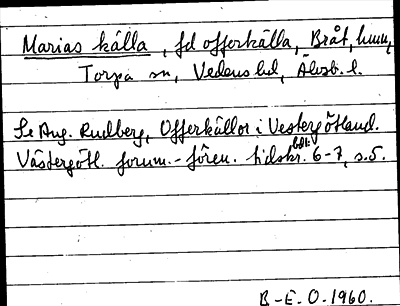 Marias källa, fd offerkälla, Bråt, hmn,
Torpa sn, Vedens hd, Älvsb. l.
Se Aug. Rudberg, Offerkällor i Vestergötland.
Västergötl. fornm.-fören. tidskr. bd 1: 6-7, s. 5.
B-E. O. 1960.